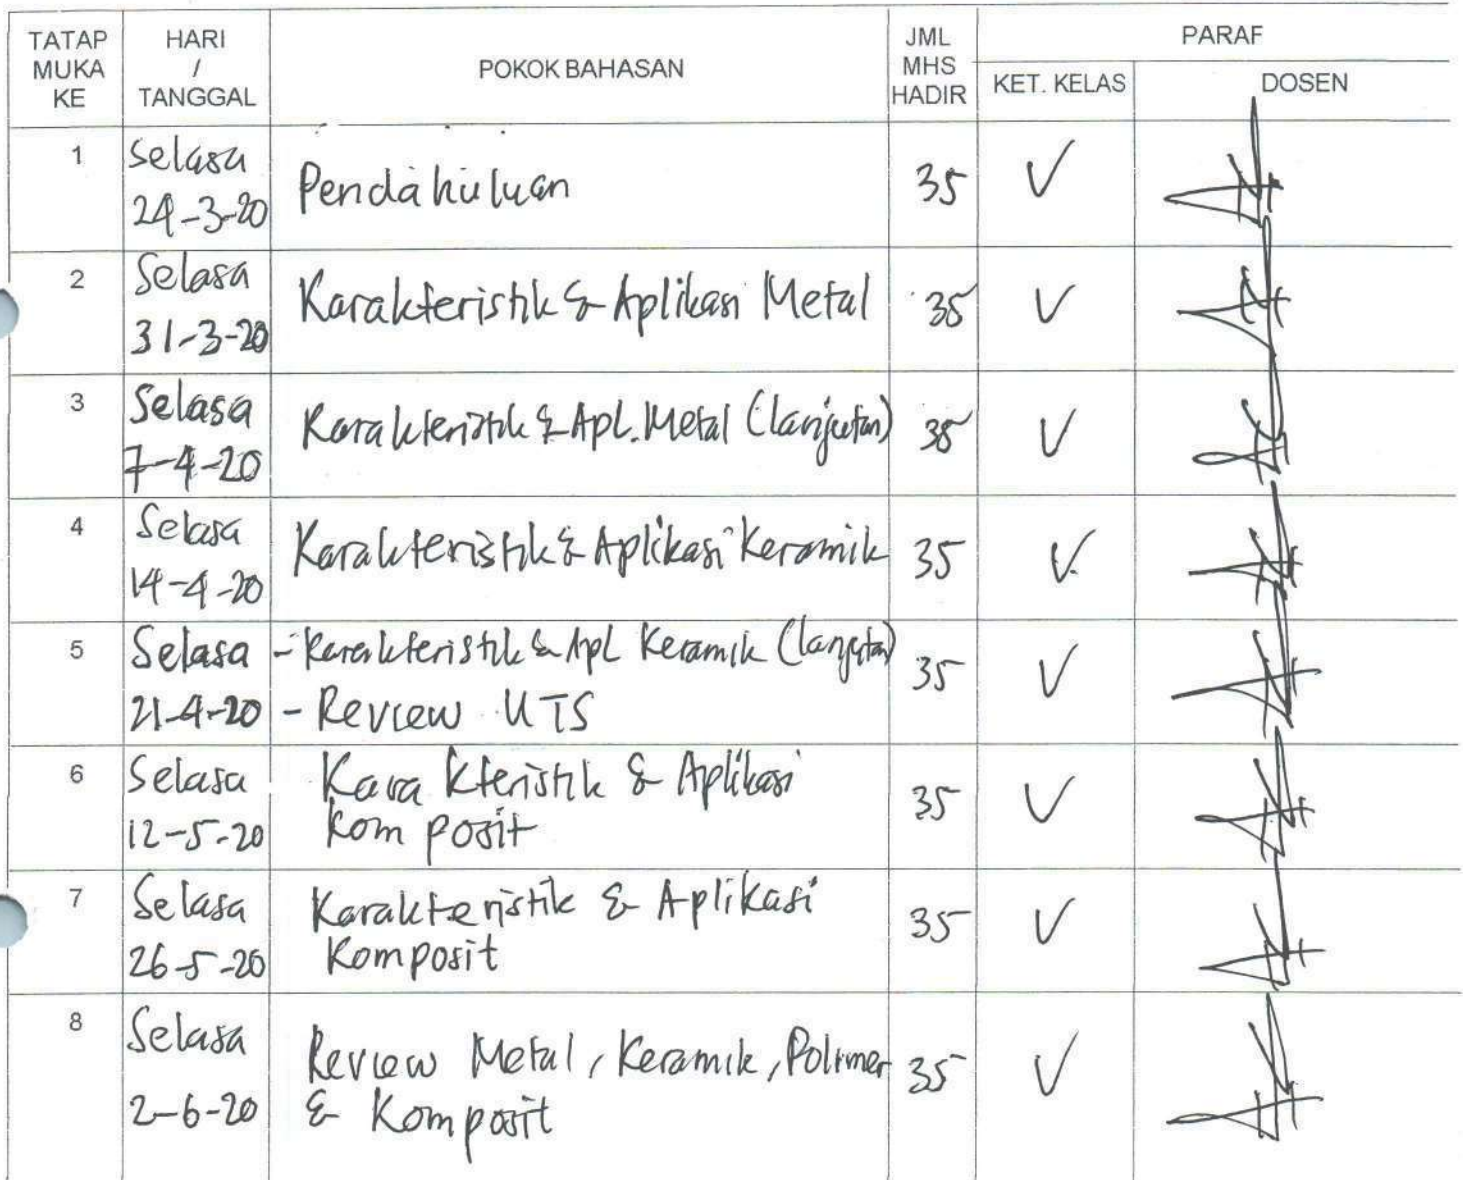 TATAP MUKA KE
HARI / TANGGAL
POKOK BAHASAN
JML MHS HADIR
PARAF
KET. KELAS
DOSEN
1
Selasa
24-3-20
Pendahuluan
35
V
2
Selasa
31-3-20
Karakteristik & Aplikasi Metal
35
V
3
Selasa
7-4-20
Karakteristik & Apl. Metal (lanjutan)
35
V
4
Selasa
14-4-20
Karakteristik & Aplikasi Keramik
35
V
5
Selasa
21-4-20
- Karakteristik & Apl Keramik (lanjutan)
- Review UTS
35
V
6
Selasa
12-5-20
Karakteristik & Aplikasi
Komposit
35
V
7
Selasa
26-5-20
Karakteristik & Aplikasi
Komposit
35
V
8
Selasa
2-6-20
Review Metal, Keramik, Polimer
& Komposit
35
V